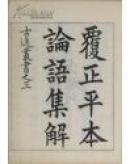 覆正平本
論語集解
古逸叢書之三